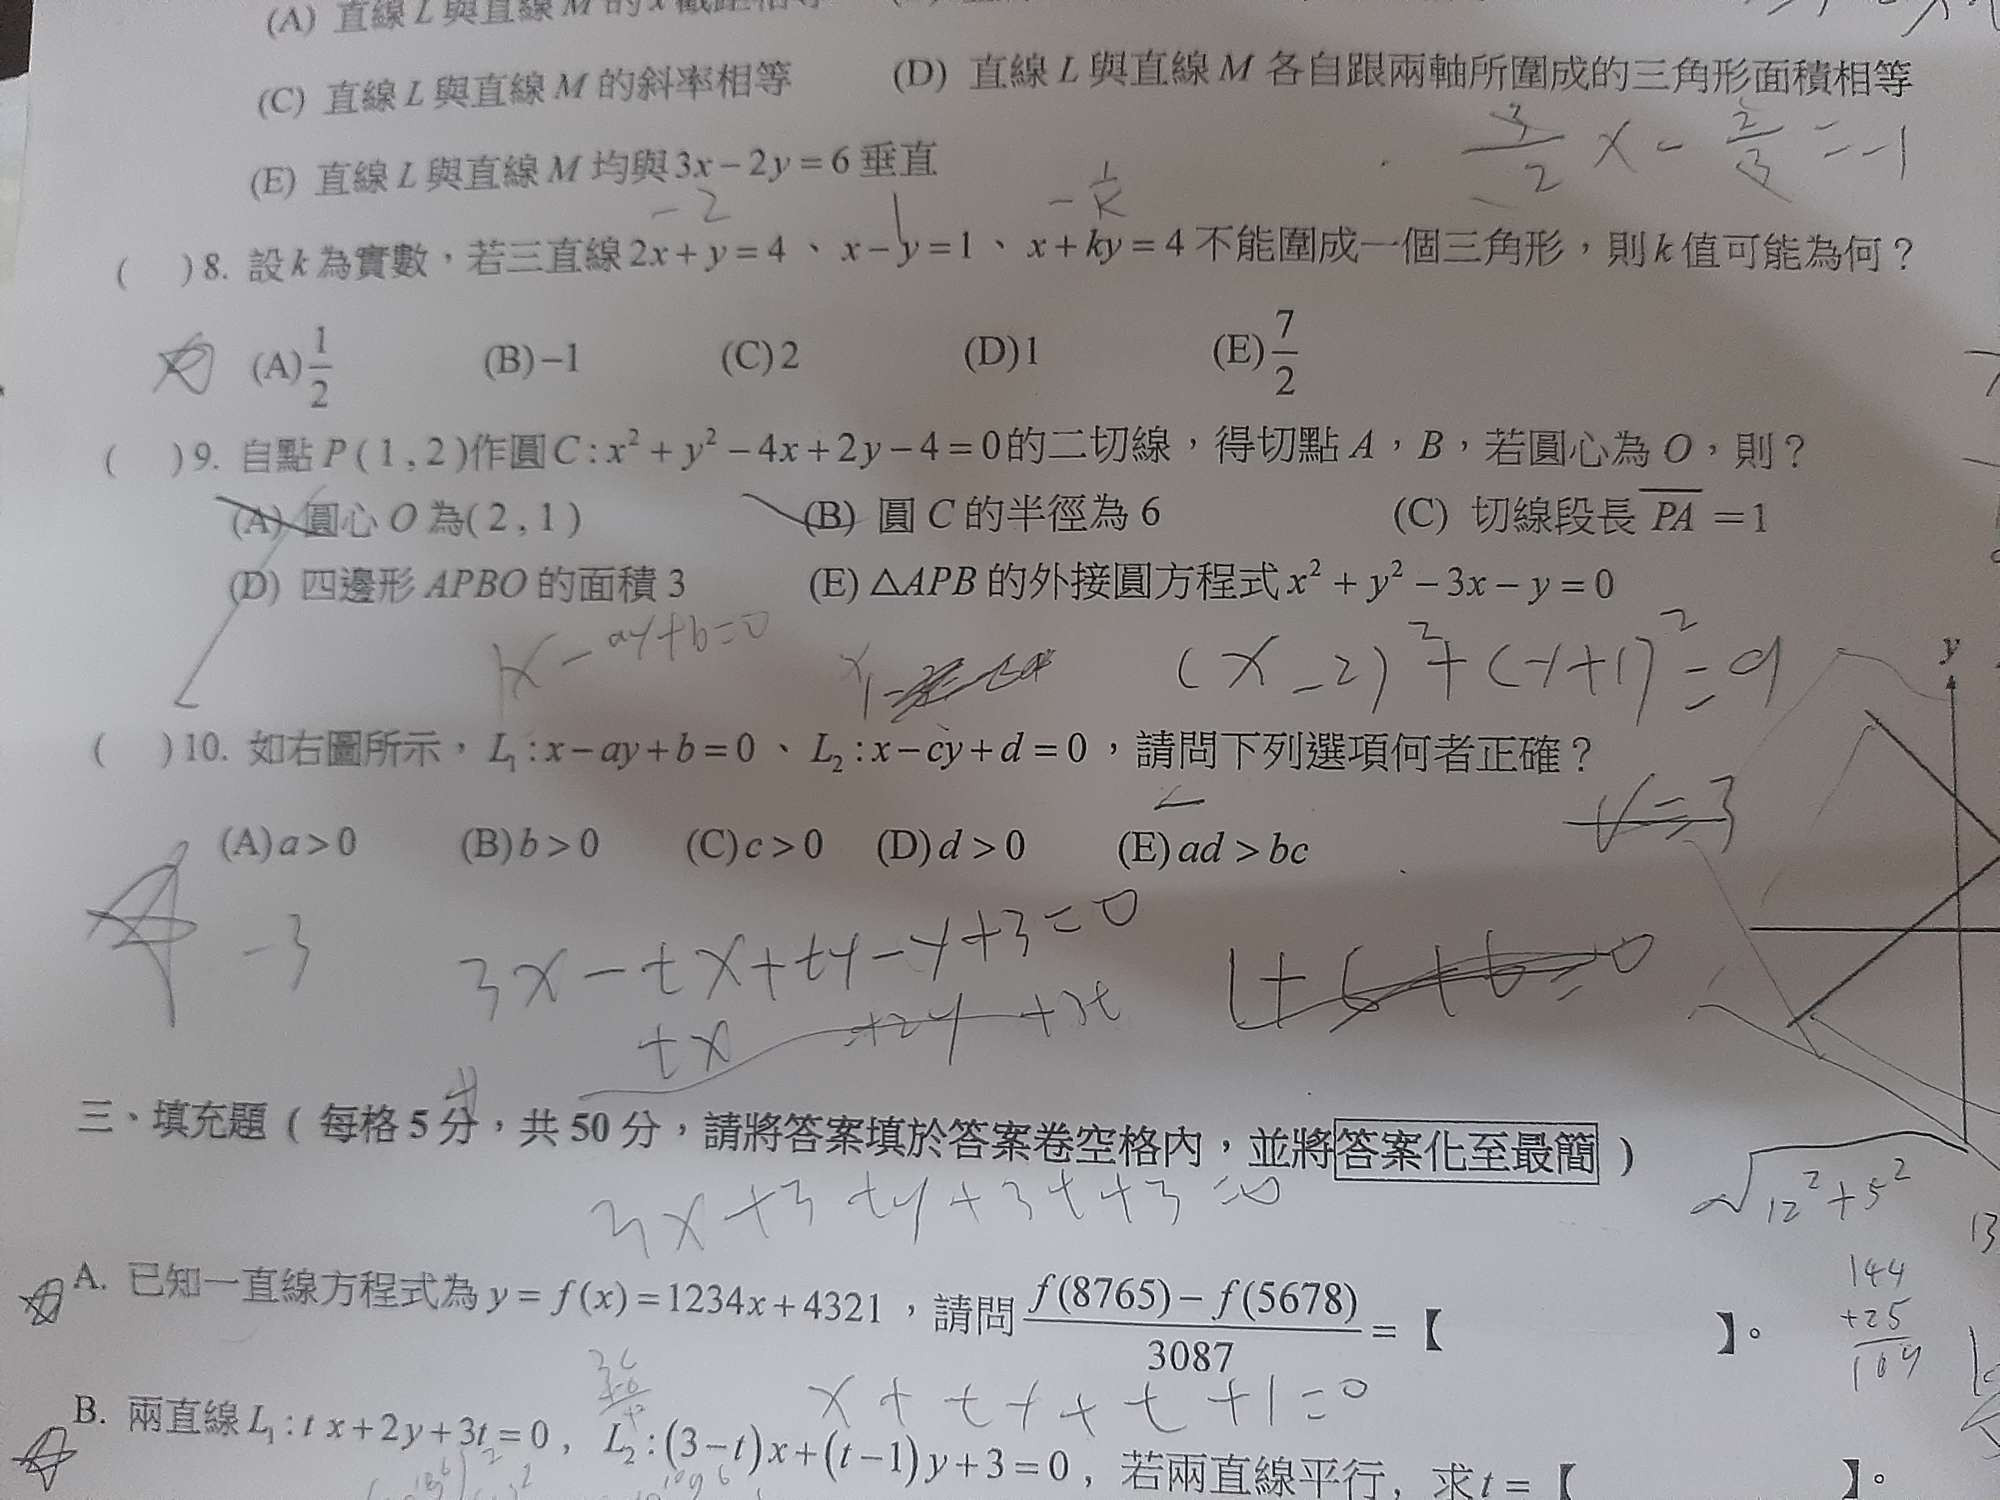 (A) 直線 L 與直線 M 的 x 截距相等
(C) 直線 L 與直線 M 的斜率相等 (D) 直線 L 與直線 M 各自跟兩軸所圍成的三角形面積相等
3/2 x - 2/3 = -1
(E) 直線 L 與直線 M 均與 3x-2y=6 垂直
-2 1 -1/k
( )8. 設 k 為實數，若三直線 2x+y=4、x-y=1、x+ky=4 不能圍成一個三角形，則 k 值可能為何？
(A) 1/2 (B) -1 (C) 2 (D) 1 (E) 7/2
( )9. 自點 P(1,2)作圓 C:x²+y²-4x+2y-4=0的二切線，得切點 A，B，若圓心為 O，則？
(A) 圓心 O 為(2,1) (B) 圓 C 的半徑為 6 (C) 切線段長 PA =1
(D) 四邊形 APBO 的面積 3 (E) △APB 的外接圓方程式 x²+y²-3x-y=0
x-ay+b=0 (x-2)²+(y+1)²=9
y
( )10. 如右圖所示，L₁:x-ay+b=0、L₂:x-cy+d=0，請問下列選項何者正確？
r=3
(A) a>0 (B) b>0 (C) c>0 (D) d>0 (E) ad>bc
-3 3x-tx+ty-y+3=0
tx +2y +3t
三、填充題 ( 每格 5 分，共 50 分，請將答案填於答案卷空格內，並將答案化至最簡 )
√12²+5²
3x+3ty+3t+3=0
13
144
+25
169
A. 已知一直線方程式為 y=f(x)=1234x+4321，請問 f(8765)-f(5678)/3087 =【 】。
x+ty+t+1=0
B. 兩直線 L₁:tx+2y+3t=0，L₂:(3-t)x+(t-1)y+3=0，若兩直線平行，求 t=【 】。